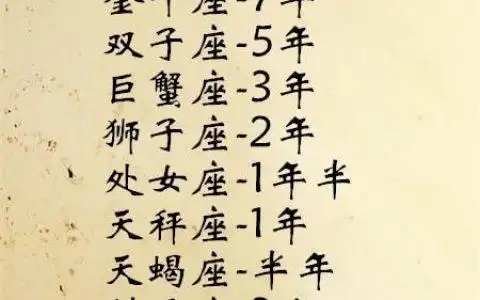 双子座-5年
巨蟹座-3年
狮子座-2年
处女座-1年半
天秤座-1年
天蝎座-半年